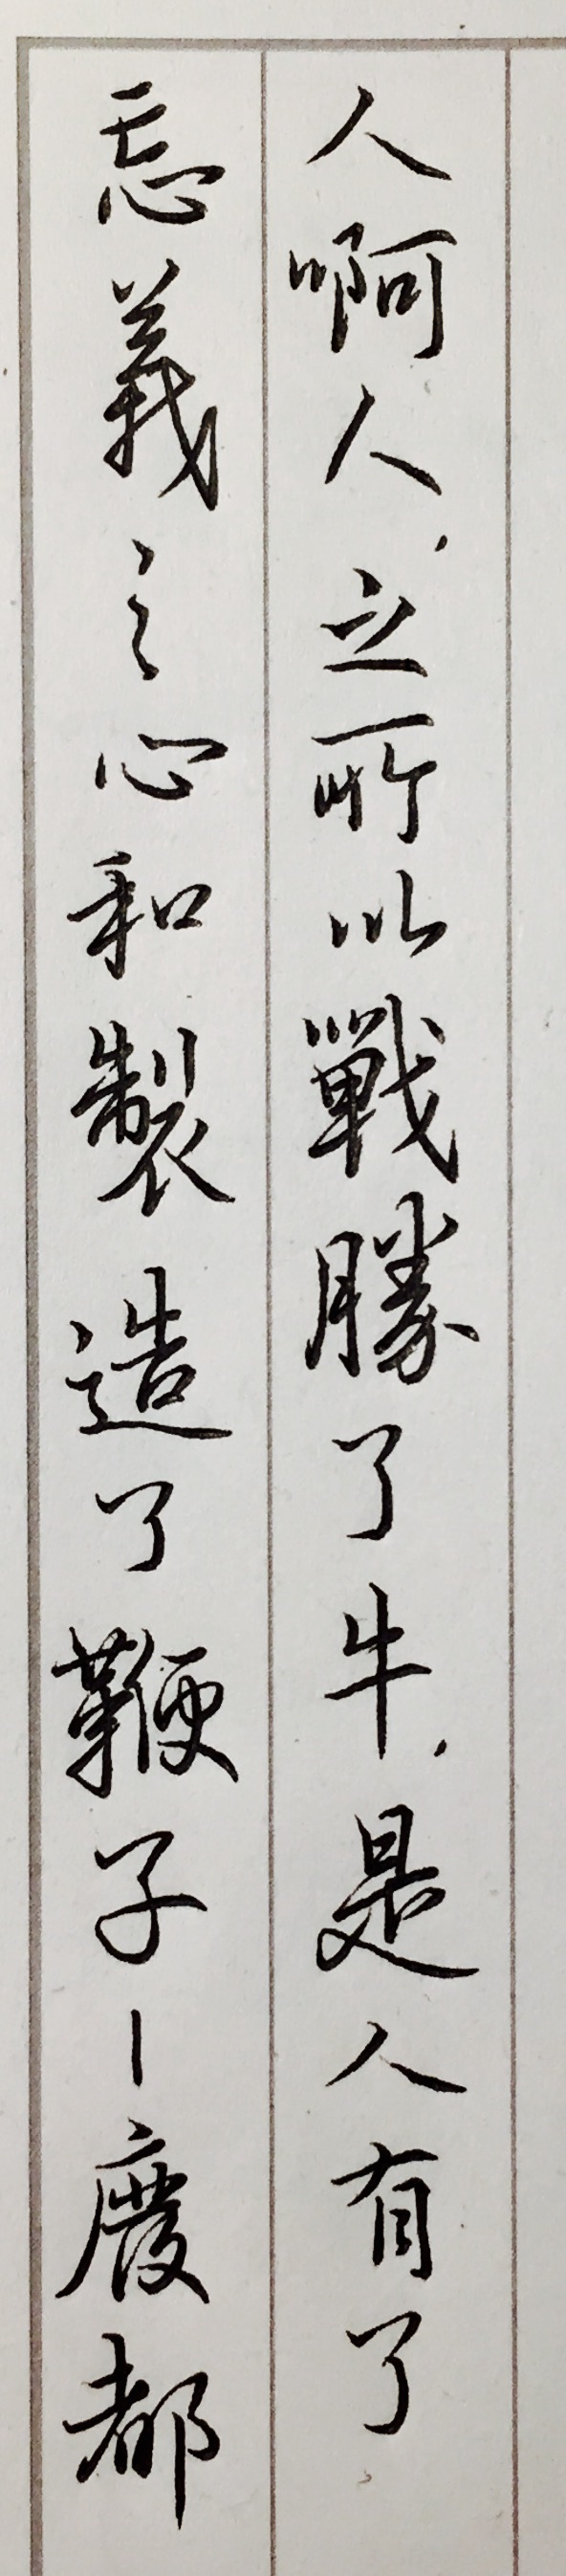 人啊人，之所以戰勝了牛，是人有了
忘義之心和製造了鞭子—慶都